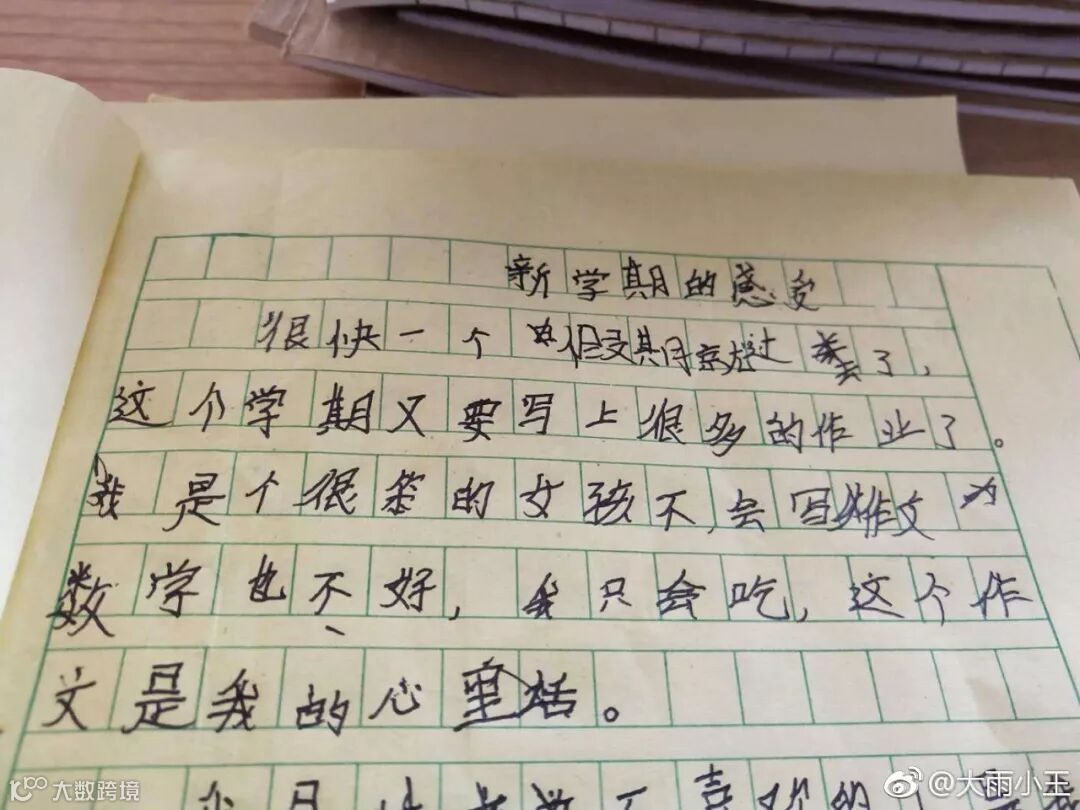 新学期的感受
很快一个 假期就过去了，
这个学期又要写上很多的作业了。
我是个很笨的女孩不会写作文
数学也不好，我只会吃，这个作
文是我的心里话。
大数跨境
@大雨小王